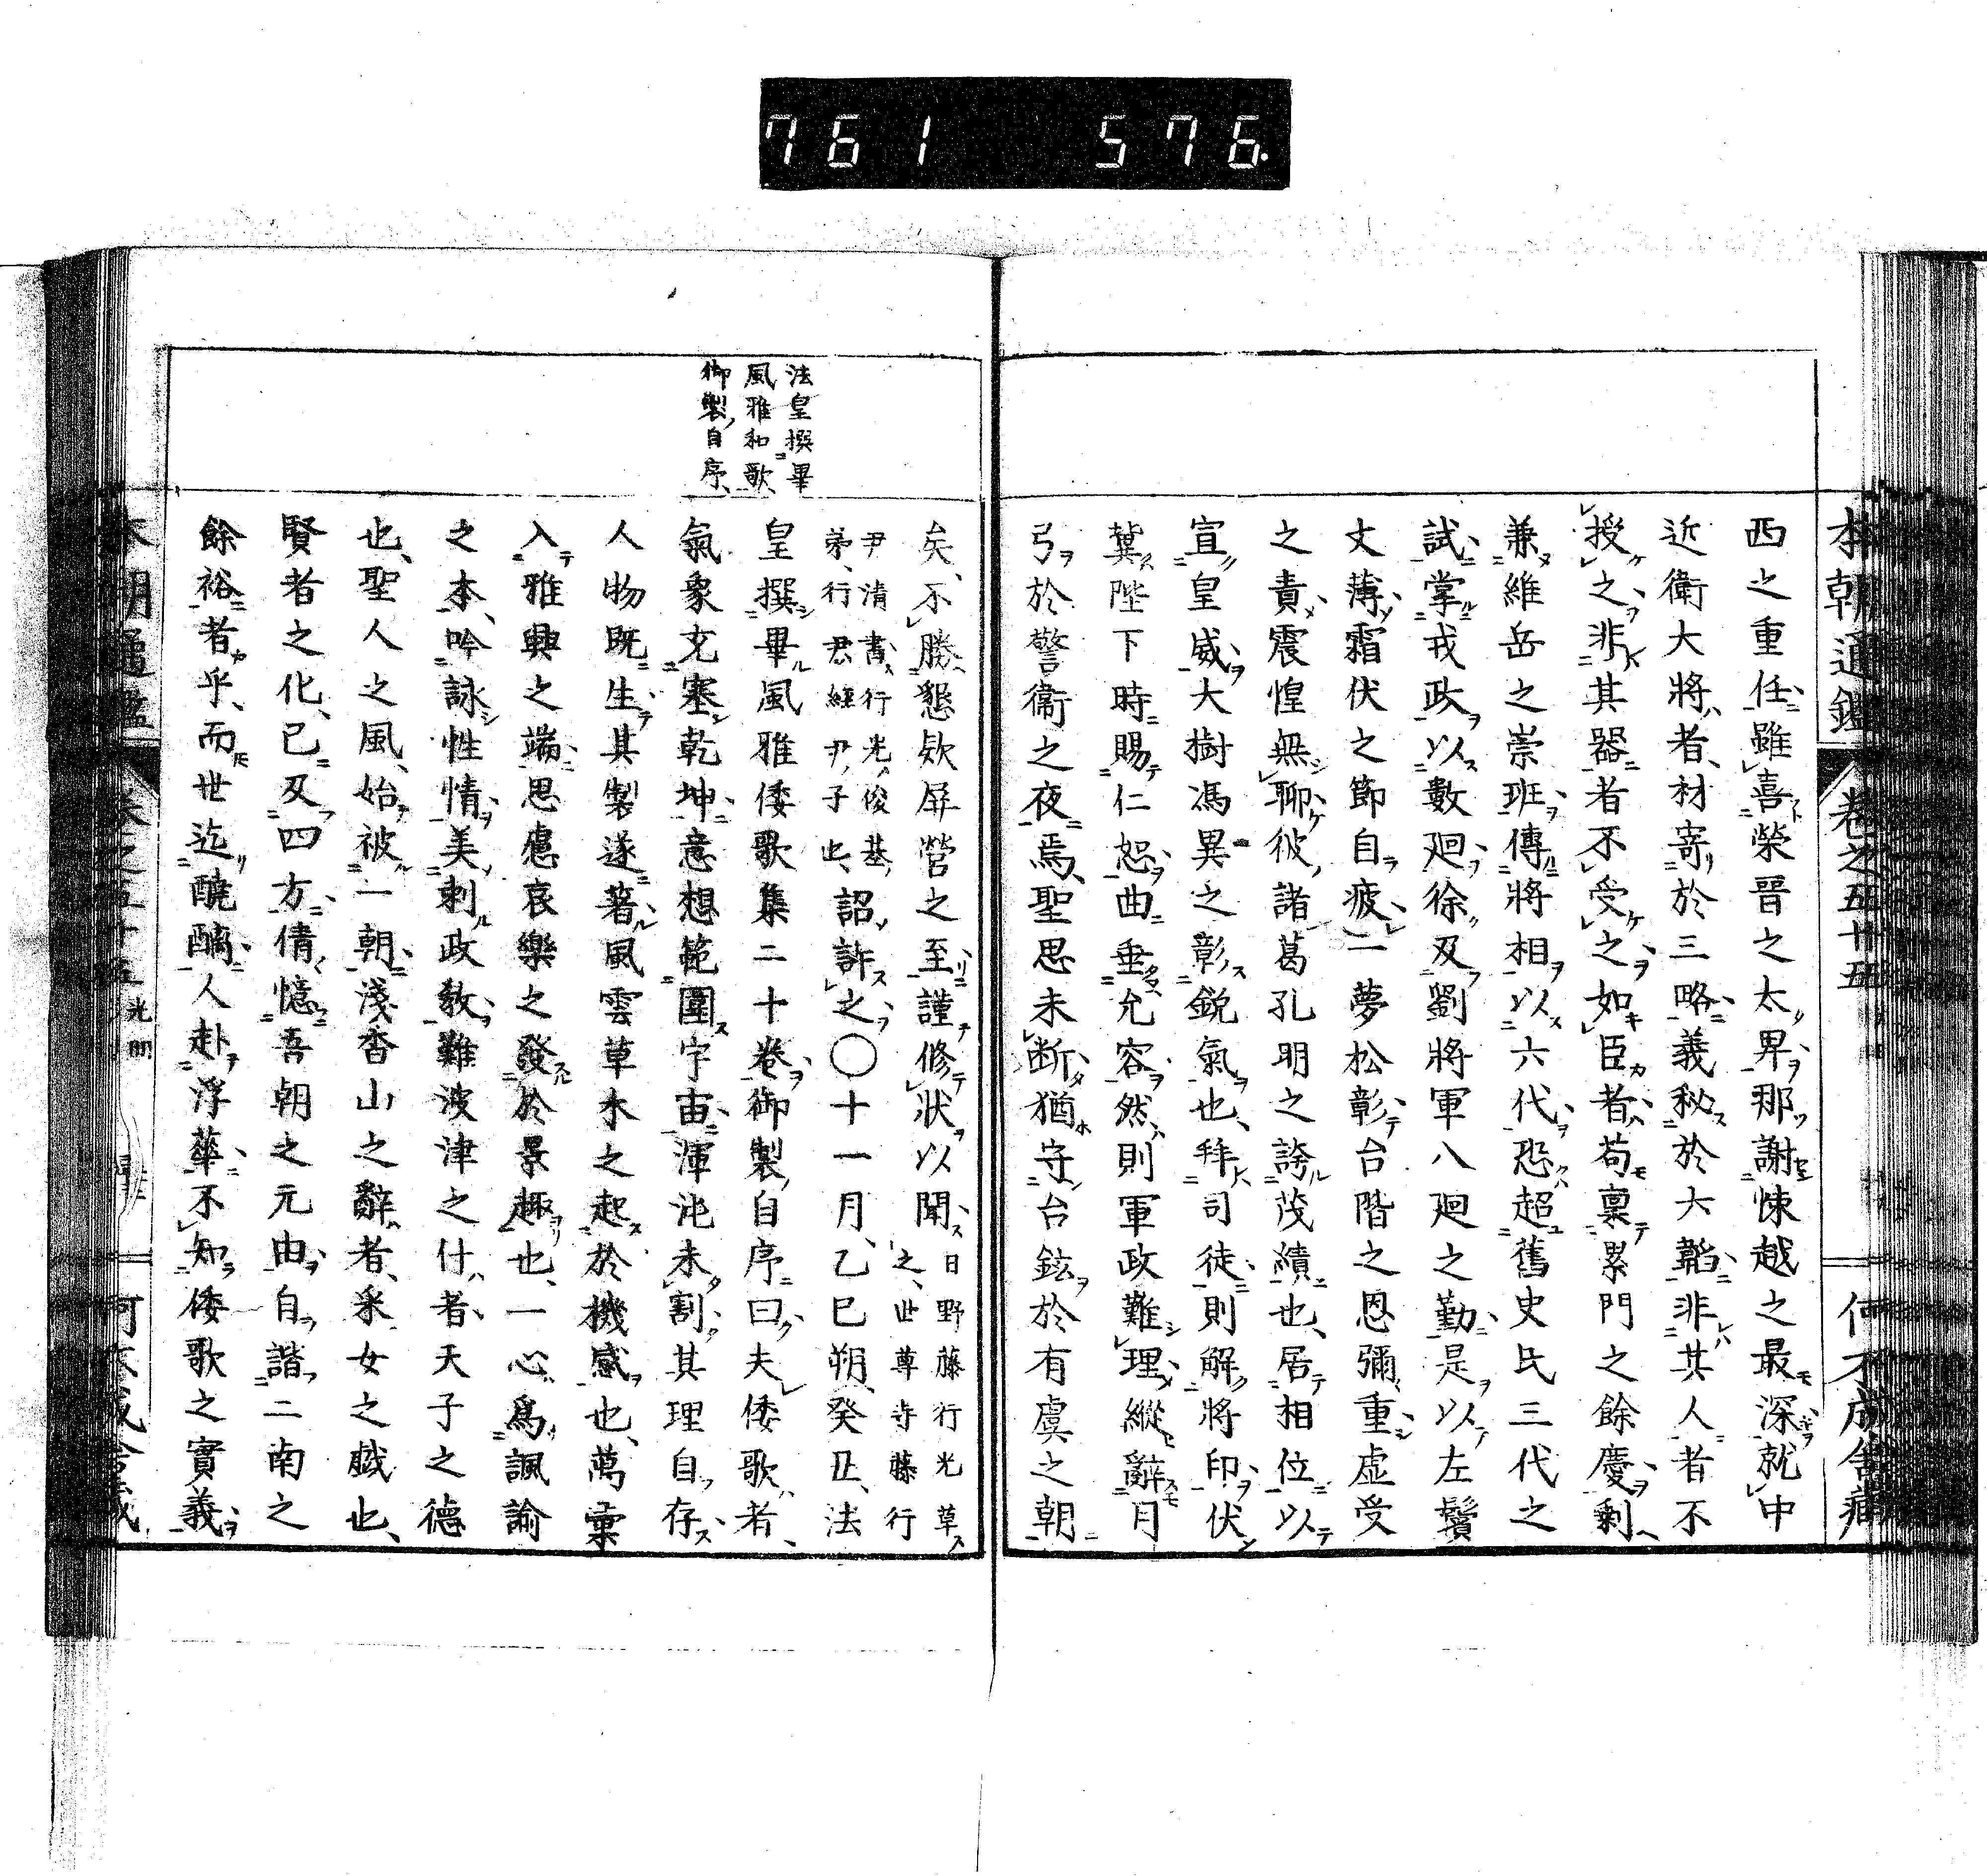 761 576.
本朝通鑑 卷之五十五
西之重任雖喜榮晉之太昇那謝悚越之最深就中
近衛大將者材寄於三略義秘於六韜非其人者不
授之非其器者不受之如臣者苟稟累門之餘慶剩
兼維岳之崇班傳將相以六代恐超舊史氏三代之
試掌戎政以數廻徐及劉將軍八廻之勤是以左鬢
丈薄霜伏之節自疲一夢松彰台階之恩彌重虛受
之責震惶無聊彼諸葛孔明之誇茂績也居相位以
宣皇威大樹馮異之彰銳氣也拜司徒則解將印伏
冀陛下時賜仁恕曲垂允容然則軍政難理縱辭月
弓於警衞之夜焉聖思未斷猶守台鉉於有虞之朝
矣、不勝懇欵屏營之至謹修狀以聞日野藤行光草
之、世尊寺藤行
尹清書、行光、俊基
弟、行君經尹子也、詔許之〇十一月、乙巳朔、癸丑、法
皇撰畢風雅倭歌集二十卷御製自序曰、夫倭歌者、
氣象充塞乾坤意想範圍宇宙渾沌未割其理自存
人物既生其製遂著風雲草木之起於機感也、萬彙
入雅興之端思慮哀樂之發於景趣也、一心爲諷諭
之本、吟詠性情美刺政敎難波津之什者天子之德
也、聖人之風、始被一朝淺香山之辭者、采女之戲也、
賢者之化、已及四方倩憶吾朝之元由自諧二南之
餘裕者乎、而世迄醨人赴浮華不知倭歌之實義
法皇撰畢
風雅和歌
御製自序、
本朝通鑑 卷之五十五 光明